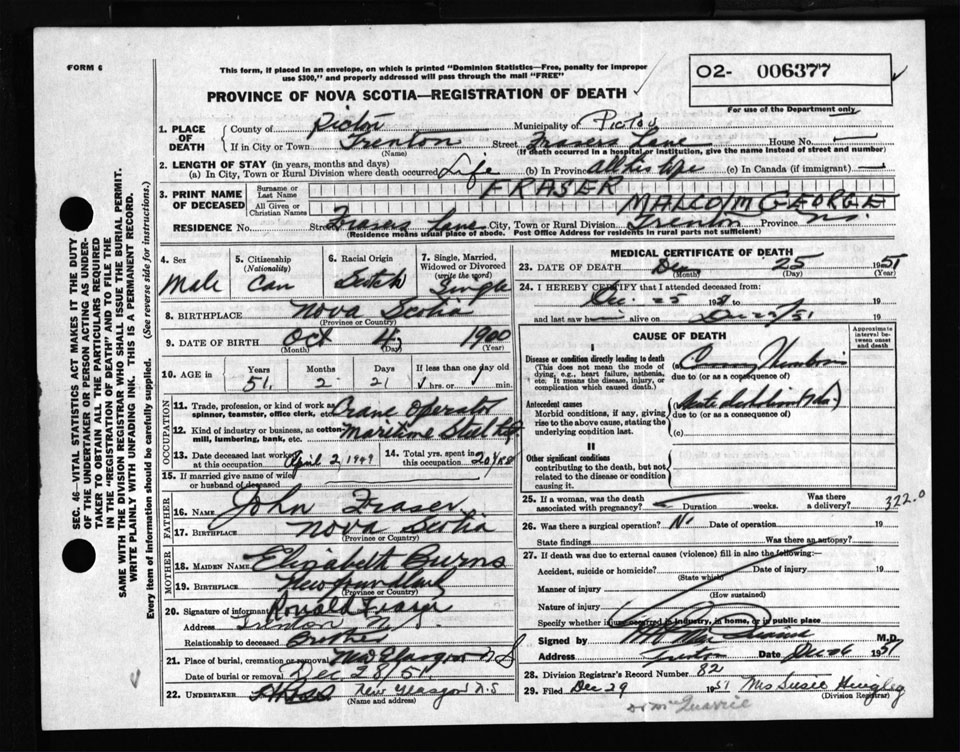 FORM 6
This form, if placed in an envelope, on which is printed "Dominion Statistics—Free, penalty for improper
use $300," and properly addressed will pass through the mail "FREE"
02- 006377
PROVINCE OF NOVA SCOTIA—REGISTRATION OF DEATH
For use of the Department only
1. PLACE OF DEATH { County of Pictou Municipality of Pictou
If in City or Town Trenton Street Frasers Lane House No. —
(Name) (If death occurred in a hospital or institution, give the name instead of street and number)
2. LENGTH OF STAY (in years, months and days)
(a) In City, Town or Rural Division where death occurred Life (b) In Province All his life (c) In Canada (if immigrant) —
3. PRINT NAME OF DECEASED { Surname or Last Name FRASER
All Given or Christian Names MALCOLM GEORGE
RESIDENCE No. Street Frasers Lane City, Town or Rural Division Trenton Province N.S.
(Residence means usual place of abode. Post Office Address for residents in rural parts not sufficient)
SEC. 46—VITAL STATISTICS ACT MAKES IT THE DUTY
OF THE UNDERTAKER OR PERSON ACTING AS UNDER-
TAKER TO OBTAIN ALL THE PARTICULARS REQUIRED
IN THE "REGISTRATION OF DEATH" AND TO FILE THE
SAME WITH THE DIVISION REGISTRAR WHO SHALL ISSUE THE BURIAL PERMIT.
WRITE PLAINLY WITH UNFADING INK. THIS IS A PERMANENT RECORD.
Every item of information should be carefully supplied. (See reverse side for instructions.)
4. Sex 5. Citizenship (Nationality) 6. Racial Origin 7. Single, Married, Widowed or Divorced (write the word)
Male Can Single
8. BIRTHPLACE Nova Scotia
(Province or Country)
9. DATE OF BIRTH Oct 4 1900
(Month) (Day) (Year)
10. AGE in Years Months Days If less than one day old
51 2 21 hrs. or min.
OCCUPATION
11. Trade, profession, or kind of work as spinner, teamster, office clerk, etc. Crane Operator
12. Kind of industry or business, as cotton-mill, lumbering, bank, etc. Maritime Steel
13. Date deceased last worked at this occupation April 2, 1949 14. Total yrs. spent in this occupation 20 yrs
15. If married give name of wife or husband of deceased
FATHER
16. NAME John Fraser
17. BIRTHPLACE Nova Scotia
(Province or Country)
MOTHER
18. MAIDEN NAME Elizabeth Burns
19. BIRTHPLACE Newfoundland
(Province or Country)
20. Signature of informant Ronald Fraser
Address Trenton N.S.
Relationship to deceased Brother
21. Place of burial, cremation or removal New Glasgow N.S.
Date of burial or removal Dec 28/51.
22. UNDERTAKER New Glasgow N.S
(Name and address)
MEDICAL CERTIFICATE OF DEATH
23. DATE OF DEATH Dec 25 1951
(Month) (Day) (Year)
24. I HEREBY CERTIFY that I attended deceased from:
Dec. 25 1951 to 19
and last saw h alive on Dec 25/51 19
CAUSE OF DEATH
Approximate interval between onset and death
I
Disease or condition directly leading to death
(This does not mean the mode of dying, e.g., heart failure, asthenia, etc. It means the disease, injury, or complication which caused death.)
Coronary Thrombosis
due to (or as a consequence of)
Antecedent causes
Morbid conditions, if any, giving rise to the above cause, stating the underlying condition last.
due to (or as a consequence of)
(c)
II
Other significant conditions
contributing to the death, but not related to the disease or condition causing it.
25. If a woman, was the death associated with pregnancy? Duration weeks. Was there a delivery?
322.0
26. Was there a surgical operation? No Date of operation 19
State findings Was there an autopsy?
27. If death was due to external causes (violence) fill in also the following:—
Accident, suicide or homicide? Date of injury 19
(State which)
Manner of injury
(How sustained)
Nature of injury
Specify whether it occurred in industry, in home, or in public place
Signed by M.D.
Address Trenton Date Dec 26 1951
28. Division Registrar's Record Number 82
29. Filed Dec 29 1951 Mrs Susie
(Division Registrar)